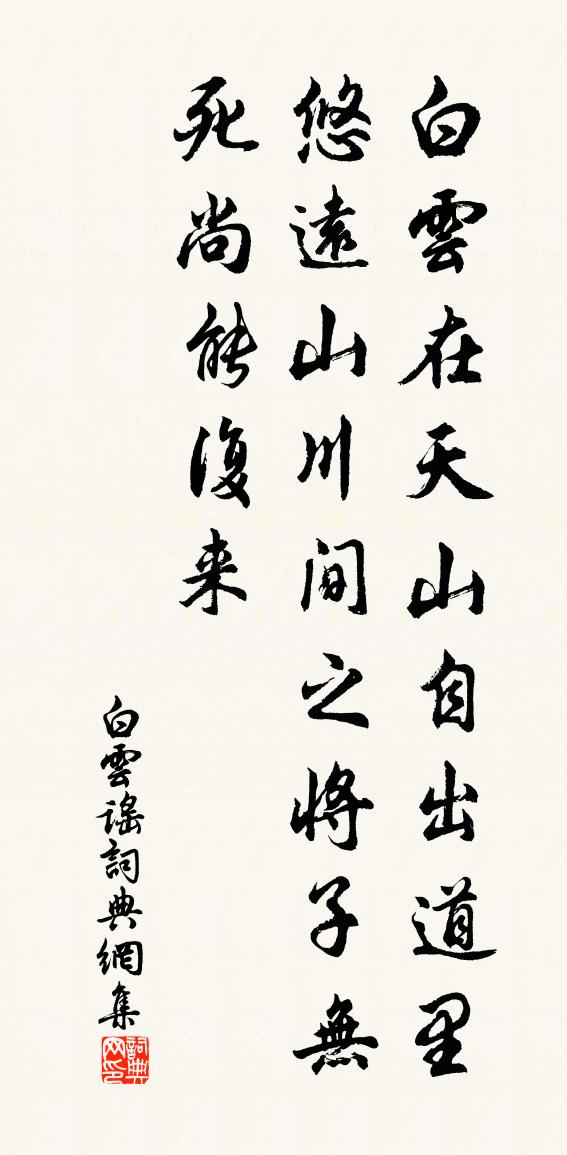 白雲在天山自出道里
悠遠山川間之將子無
死尚能復来
白雲謠詞典網集
詞典网印